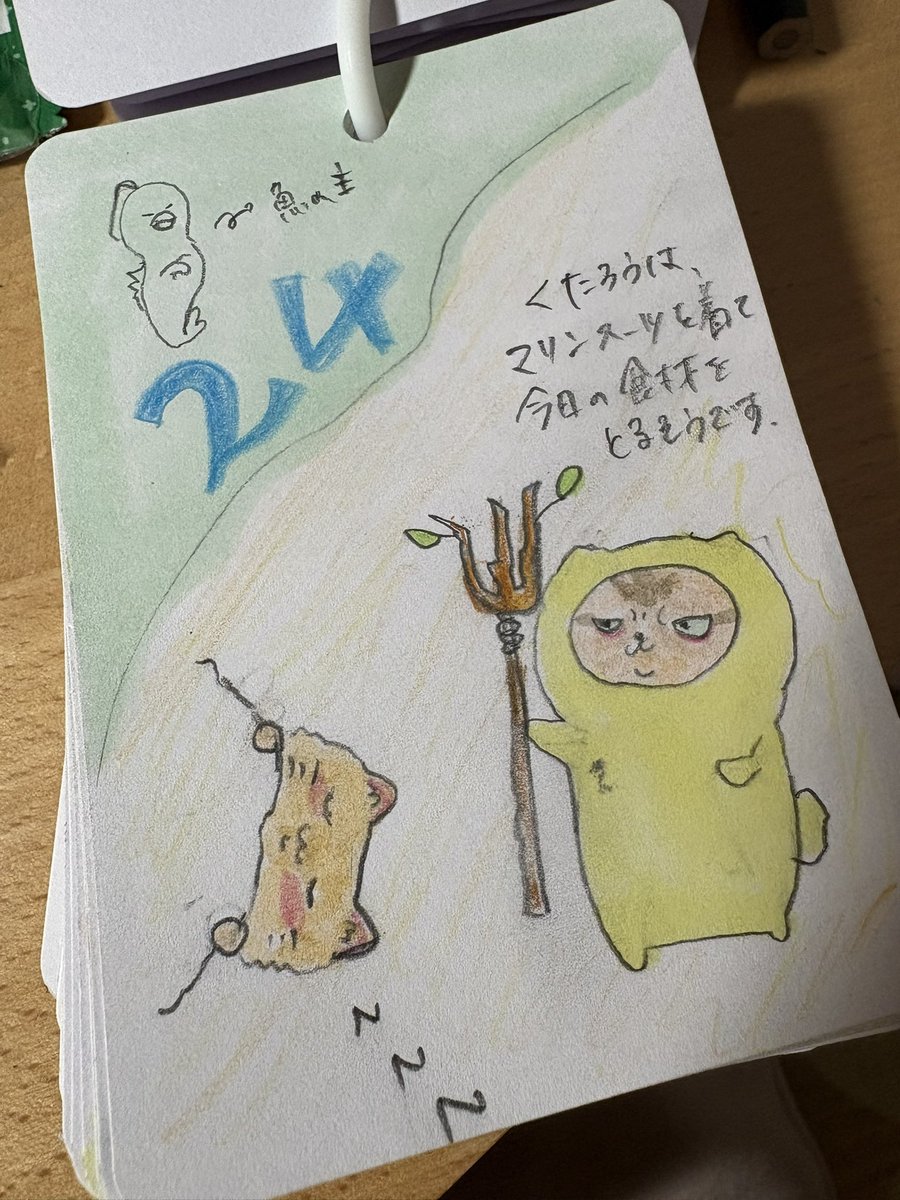 魚の主
24
くたろうは、
マリンスーツを着て
今日の食材を
とるそうです.
z
z
z